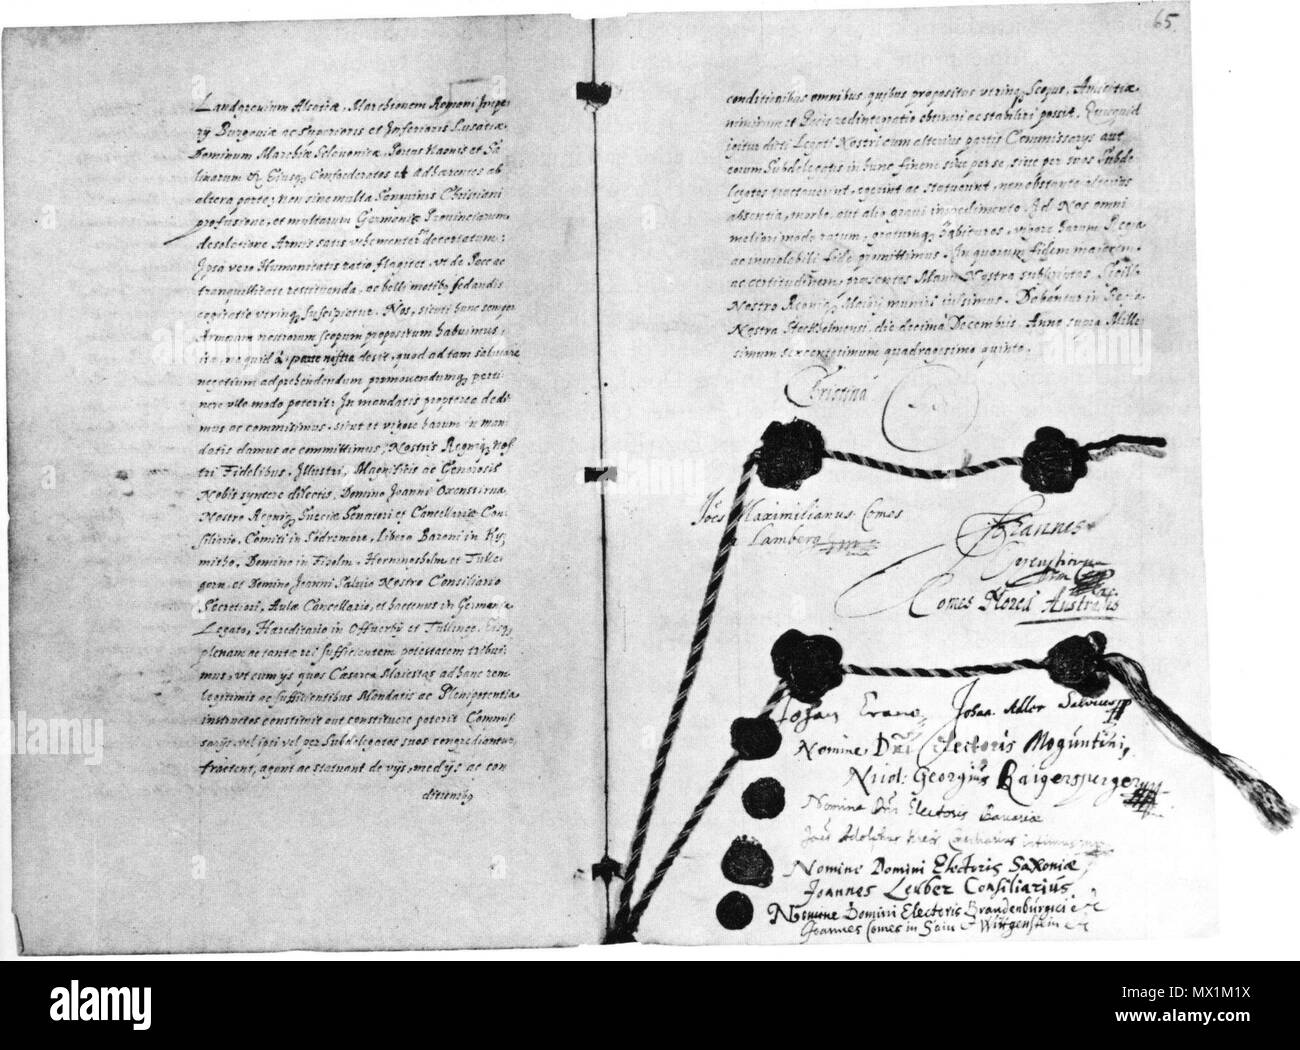 65
Landgravium Alsatiæ, Marchionem Romani Impe-
rÿ Burgoviæ ac Superioris et Inferioris Lusatiæ,
Dominum Marchiæ Sclavonicæ, Portus Naonis et Sa-
linarum &c Eiusq; Confoederatos et Adhærentes ab
altera parte, non sine multa Sanguinis Christiani
profusione, et multarum Germaniæ Provinciarum
desolatione Armis satis vehementer decertatum:
Ipsa vero Humanitatis ratio flagitet, vt de Pace ac
tranquillitate restituenda, ac belli motib9 sedandis
cogitatio vtrinq; suscipiatur. Nos, sicuti hunc semper
Armorum nostrorum scopum propositum habuimus,
ita, ne quid à parte nostra desit, quod ad tam salutare
negotium adprehendendum promovendumq; perti-
nere vllo modo poterit: In mandatis propterea dedi-
mus ac commisimus, sicut et vigore harum in man-
datis damus ac committimus, Nostris Regniq; nos-
tri Fidelibus, Illustri, Magnificis ac Generosis
Nobis syncere dilectis, Domino Joanni Oxenstirna
Nostro Regniq; Sueciæ Senatori et Cancellariæ Con-
siliario, Comiti in Södremore, Libero Baroni in Ky-
mitho, Domino in Fiholm, Horningsholm et Tulle-
garn, et Domino Joanni Salvio Nostro Consiliario
Secretiori, Aulæ Cancellario, et hactenus in Germania
Legato, Hæreditario in Offuerby et Tullinge. Eosq;
plenam ac tantæ rei sufficientem potestatem tribui-
mus, vt cum ijs quos Cæsarea Maiestas ad hanc rem
legitimis ac sufficientibus Mandatis ac Plenipotentia
instructos constituit aut constituere poterit Commis-
sarijs, vel ipsi vel per Subdelegatos suos congrediantur,
tractent, agant ac statuant de vijs, medijs ac con-
ditionib9
conditionibus omnibus quibus propositus vtrinq; Scopus, Amicitiæ
nimirum et Pacis redintegratio obtineri ac stabiliri possit. Quicquid
igitur dicti Legati Nostri cum alterius partis Commissarijs aut
eorum Subdelegatis in hunc finem sive per se, sive per suos Subde-
legatos tractaverint, egerint ac statuerint, non obstante alterius
absentia, morbo, aut alio gravi impedimento Id Nos omni
meliori modo ratum, gratumq; habituros, vigore harum Regia
ac inviolabili fide promittimus. In quorum fidem maiorem
ac certitudinem, præsentes Manu Nostra subscriptas Sigillo
Nostro Regniq; Maiori muniri iussimus. Dabantur in Regia
Nostra Stockholmensi, die decima Decembris, Anno supra Mille-
simum sexcentesimum quadragesimo quinto.
Christina
Joēs Maximilianus Comes
a Lamberg
Johannes
Comes
Johan Adler Salvius
Nomine Dni Electoris Moguntini,
Nicol: Georgius Raigersperger
Nomine Dni Electoris Bavariæ
Nomine Domini Electoris Saxoniæ
Joannes Leuber Consiliarius
Nomine Domini Electoris Brandenburgici &c
Joannes Comes in Sain & Wittgenstein &c
alamy
Image ID: MX1M1X
www.alamy.com